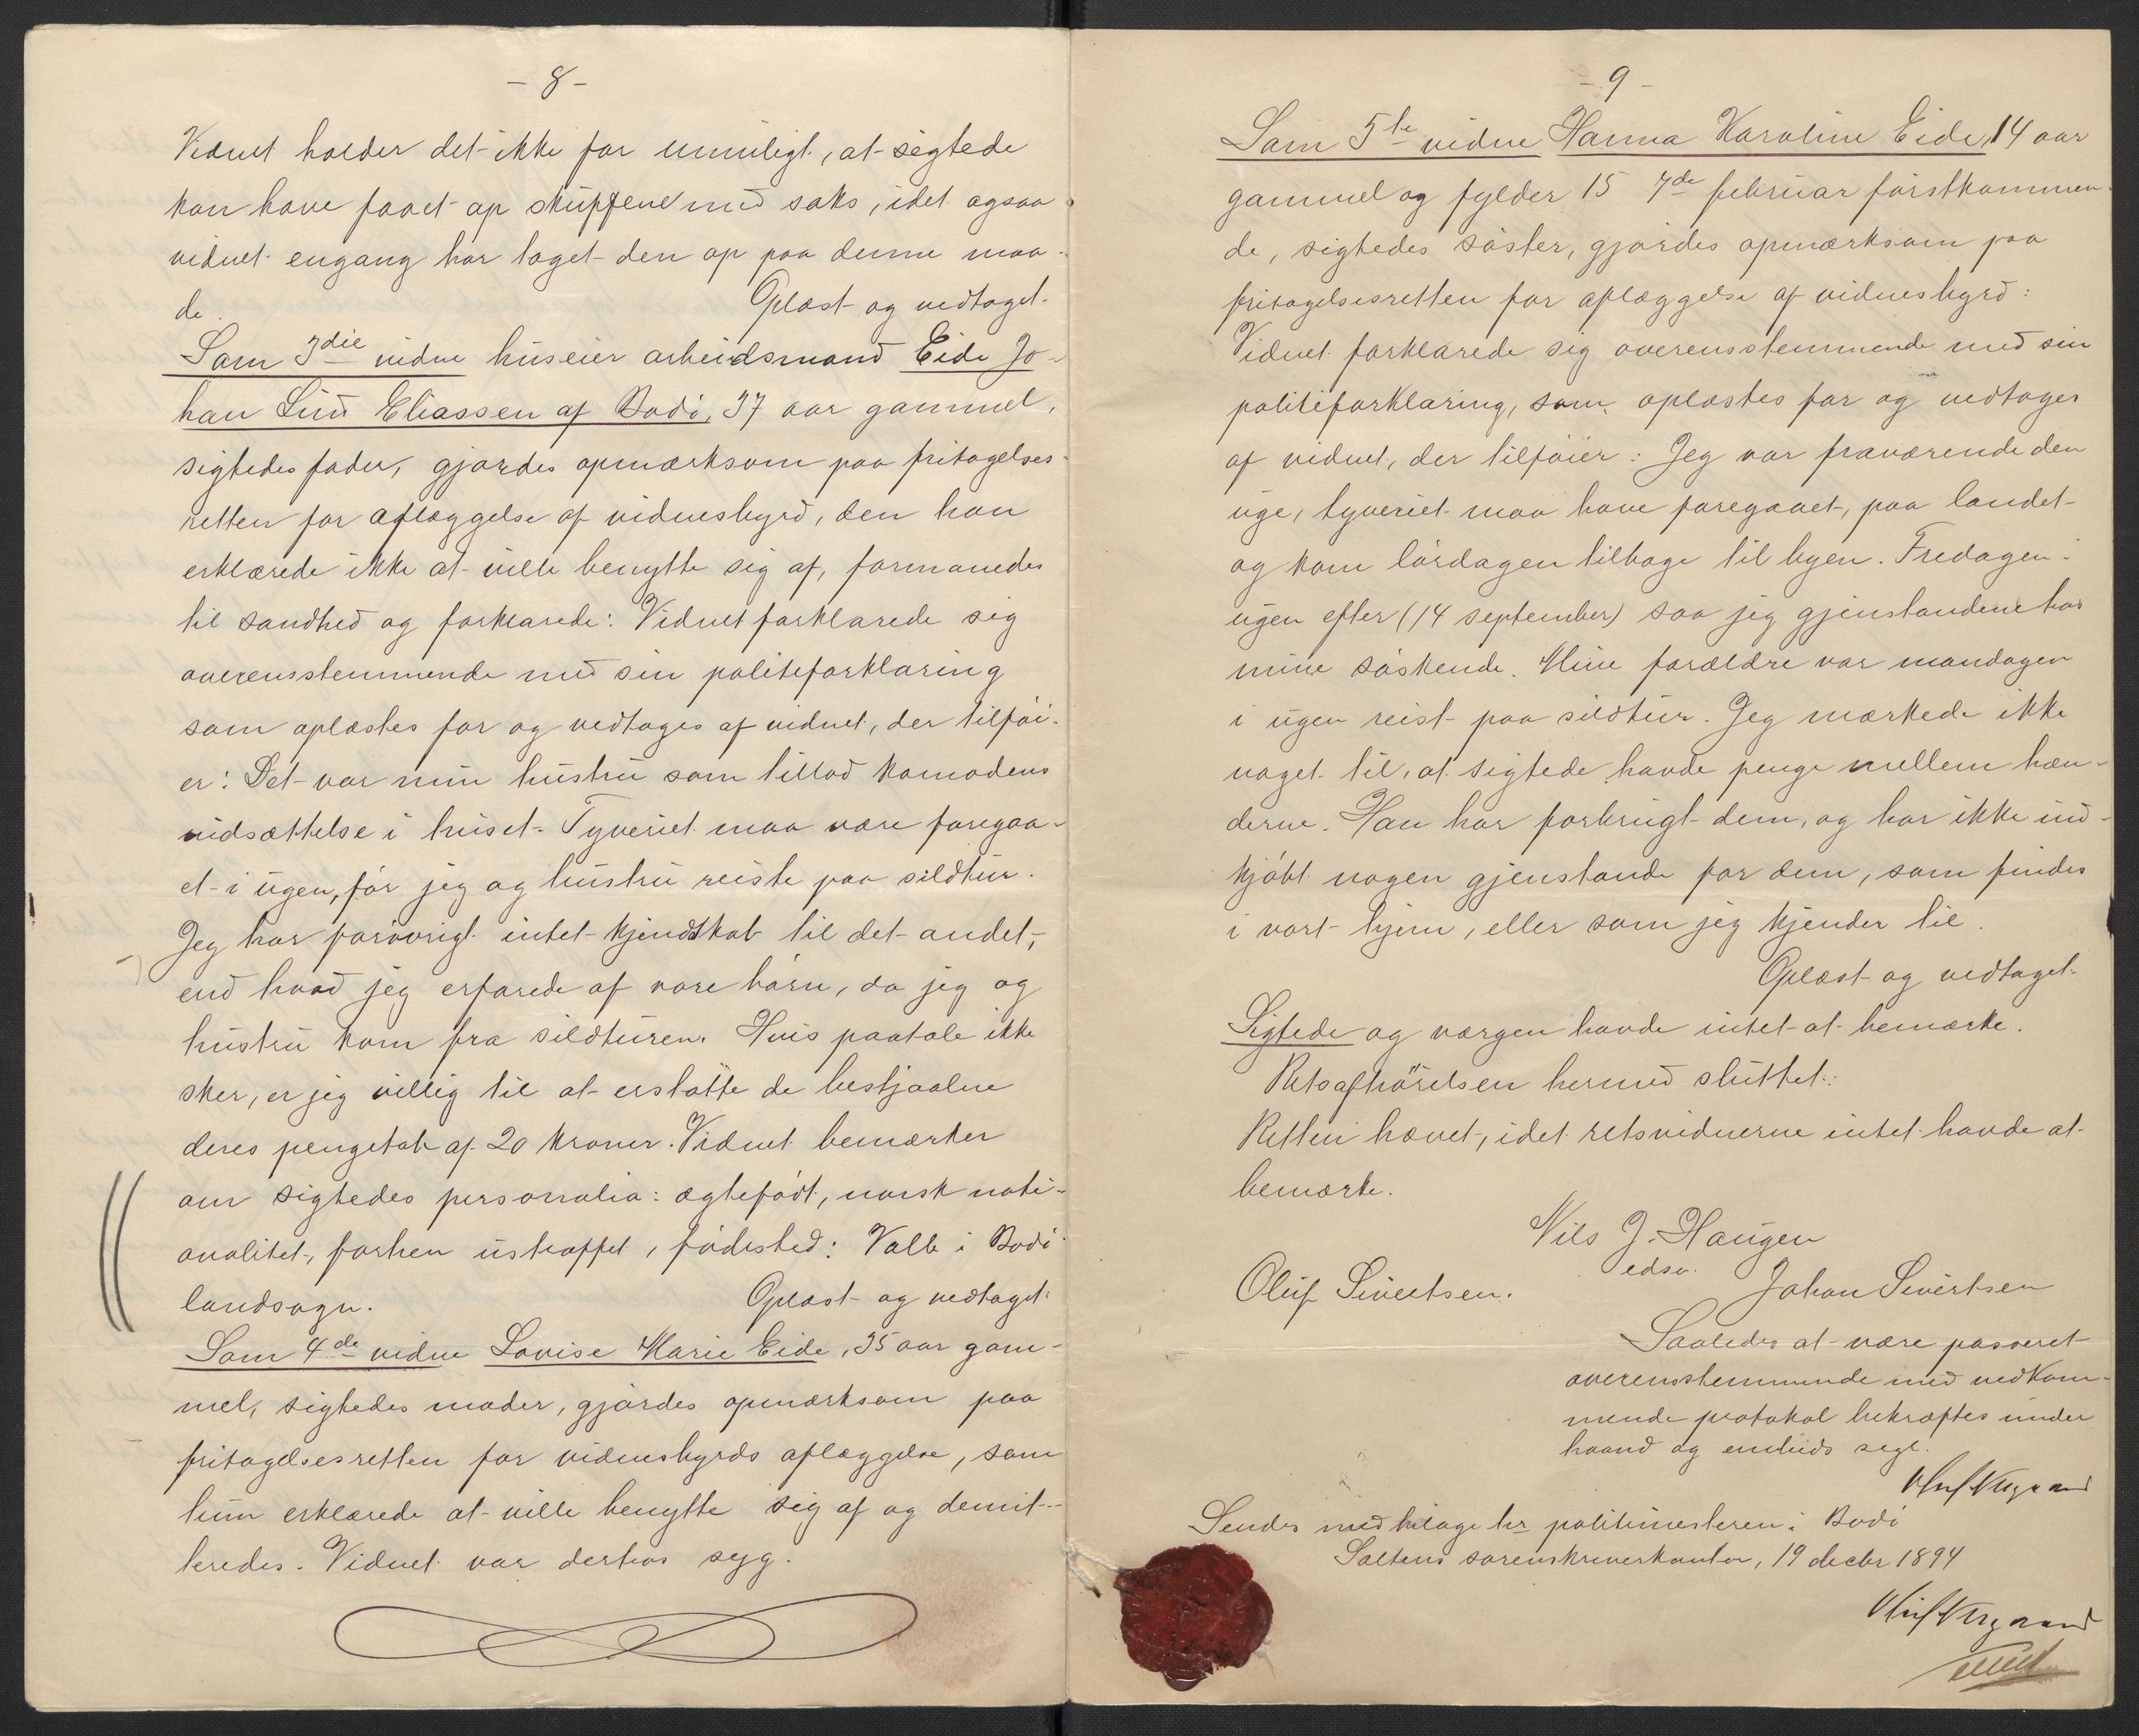 - 8 -
Vidnet holder det ikke for umuligt, at sigtede
kan have faaet op skuffene med saks, idet ogsaa
vidnet engang har taget den op paa denne maa-
de. Oplæst og vedtaget.
Som 3die vidne huseier arbeidsmand Eide Jo-
han Eliassen af Bodö, 37 aar gammel,
sigtedes fader, gjordes opmærksom paa fritagelses-
retten for aflæggelse af vidnesbyrd, den han
erklærede ikke at ville benytte sig af, formanedes
til sandhed og forklarede: Vidnet forklarede sig
overensstemmende med sin politiforklaring
som oplæstes for og vedtoges af vidnet, der tilföi-
er: Det var min hustru som tillod komodens
nidsættelse i huset. Tyveriet maa være foregaa-
et i ugen, för jeg og hustru reiste paa sildtur.
Jeg har forövrigt intet kjendskab til det andet,
end hvad jeg erfarede af vore börn, da jeg og
hustru kom fra sildturen. Hvis paatale ikke
sker, er jeg villig til at erstatte de bestjaalne
deres pengetab af 20 kroner. Vidnet bemærker
om sigtedes personalia: ægtefödt, norsk nati-
onalitet, forhen ustraffet, födested: Valle i Bodö
landsogn. Oplæst og vedtaget.
Som 4de vidne Lovise Marie Eide, 35 aar gam-
mel, sigtedes moder, gjordes opmærksom paa
fritagelsesretten for vidnesbyrds aflæggelse, som
hun erklærede at ville benytte sig af og demit-
teredes. Vidnet var derhos syg.
- 9 -
Som 5te vidne Hanna Karoline Eide, 14 aar
gammel og fylder 15 7de februar förstkommen-
de, sigtedes söster, gjordes opmærksom paa
fritagelsesretten for aflæggelse af vidnesbyrd:
Vidnet forklarede sig overensstemmende med sin
politiforklaring, som oplæstes for og vedtoges
af vidnet, der tilföier: Jeg var fraværende den
uge, tyveriet maa have foregaaet, paa landet
og kom lördagen tilbage til byen. Fredagen i
ugen efter (14 september) saa jeg gjenstandene hos
mine söskende. Mine forældre var mandagen
i ugen reist paa sildtur. Jeg mærkede ikke
noget til, at sigtede havde penge mellem hæn-
derne. Han har forbrugt dem, og har ikke ind-
kjöbt nogen gjenstande for dem, som findes
i vort hjem, eller som jeg kjender til.
Oplæst og vedtaget.
Sigtede og værgen havde intet at bemærke.
Retsafhörelsen hermed sluttet.
Retten hævet, idet retsvidnerne intet havde at
bemærke.
Nils J. Haugen
edsv.
Oluf Sivertsen. Johan Sivertsen
Saaledes at være passeret
overensstemmende med vedkom-
mende protokol bekræftes under
haand og embeds segl.
Sendes med bilage hr politimesteren i Bodö
Saltens sorenskriverkontor, 19 decbr 1894